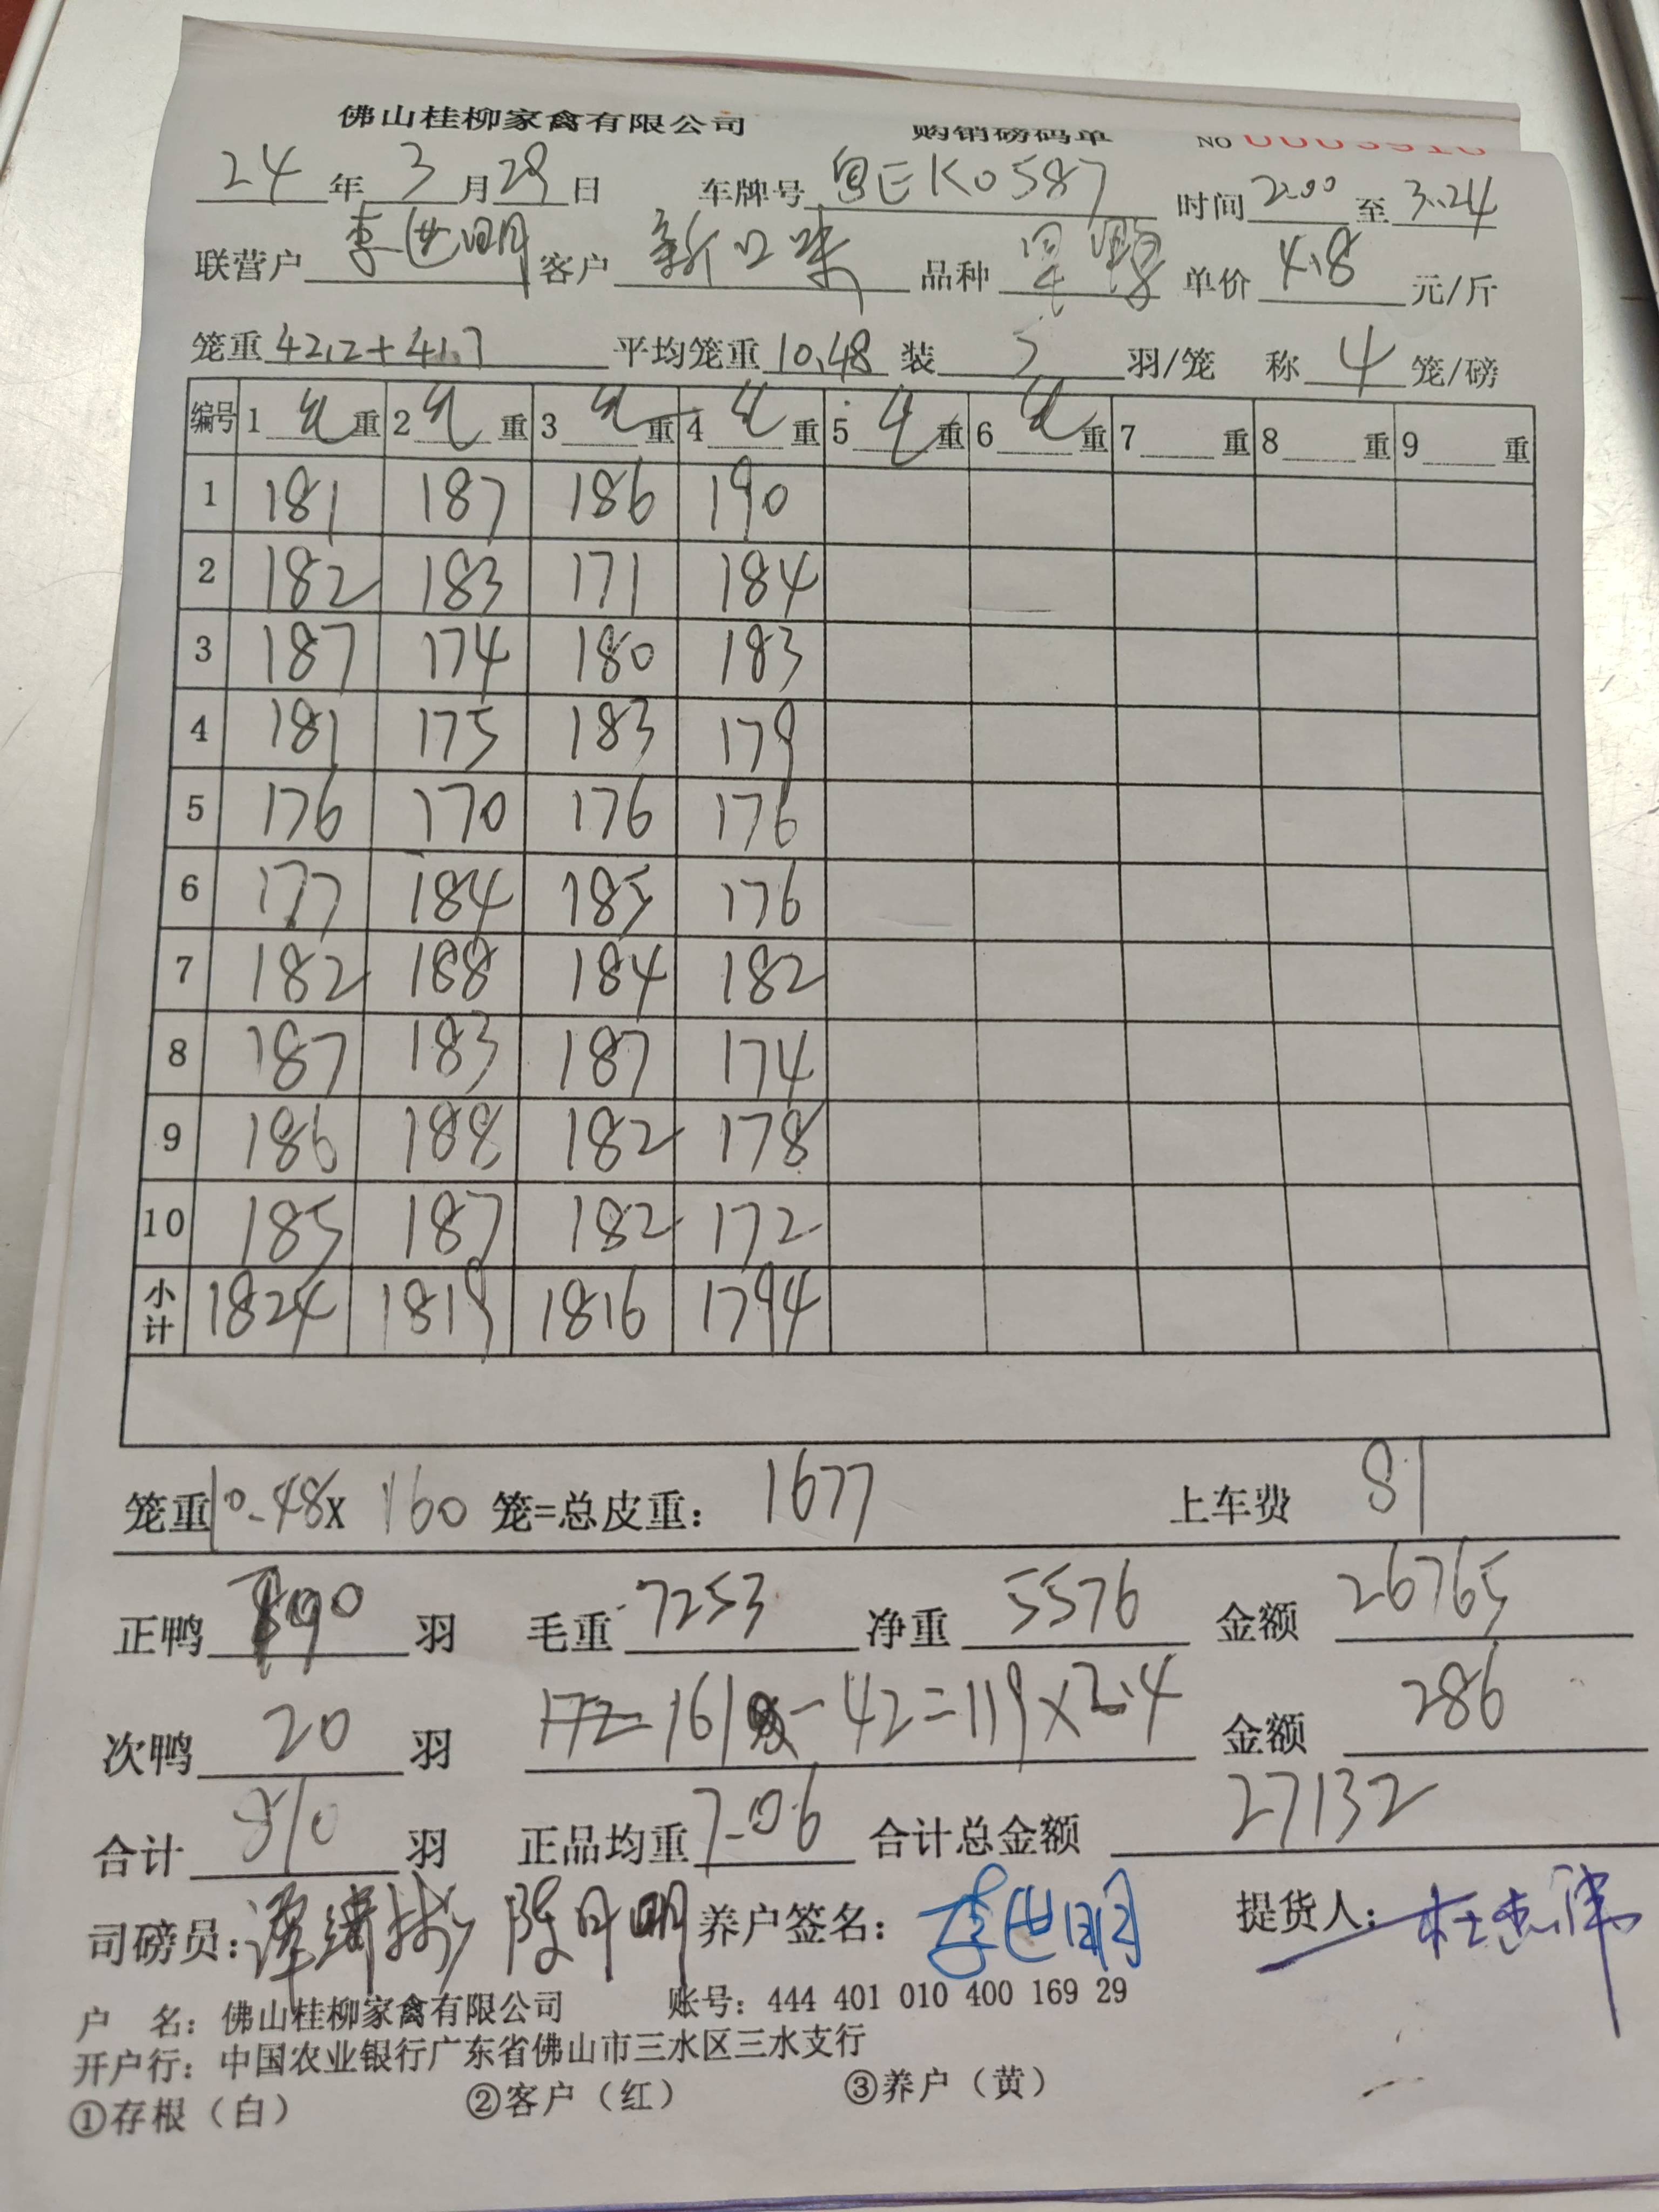 佛山桂柳家禽有限公司 购销磅码单 NO
24年3月29日 车牌号 粤EK0587 时间2:00至3:24
联营户 李世明 客户 新口味 品种 单价 4.8 元/斤
笼重 42.2+41.7 平均笼重 10.48 装 5 羽/笼 称 4 笼/磅
编号 1 重 2 重 3 重 4 重 5 重 6 重 7 重 8 重 9 重
1 181 187 186 190
2 182 183 171 184
3 187 174 180 183
4 181 175 183 179
5 176 170 176 176
6 177 184 185 176
7 182 188 184 182
8 187 183 187 174
9 186 188 182 178
10 185 187 182 172
小计 1824 1819 1816 1794
笼重10.48x 160 笼=总皮重: 1677 上车费 81
正鸭 790 羽 毛重 7253 净重 5576 金额 26765
次鸭 20 羽 161-42=119×2.4 金额 286
合计 810 羽 正品均重 7.06 合计总金额 27132
司磅员: 养户签名: 李世明 提货人:
户 名: 佛山桂柳家禽有限公司 账号: 444 401 010 400 169 29
开户行: 中国农业银行广东省佛山市三水区三水支行
①存根（白） ②客户（红） ③养户（黄）